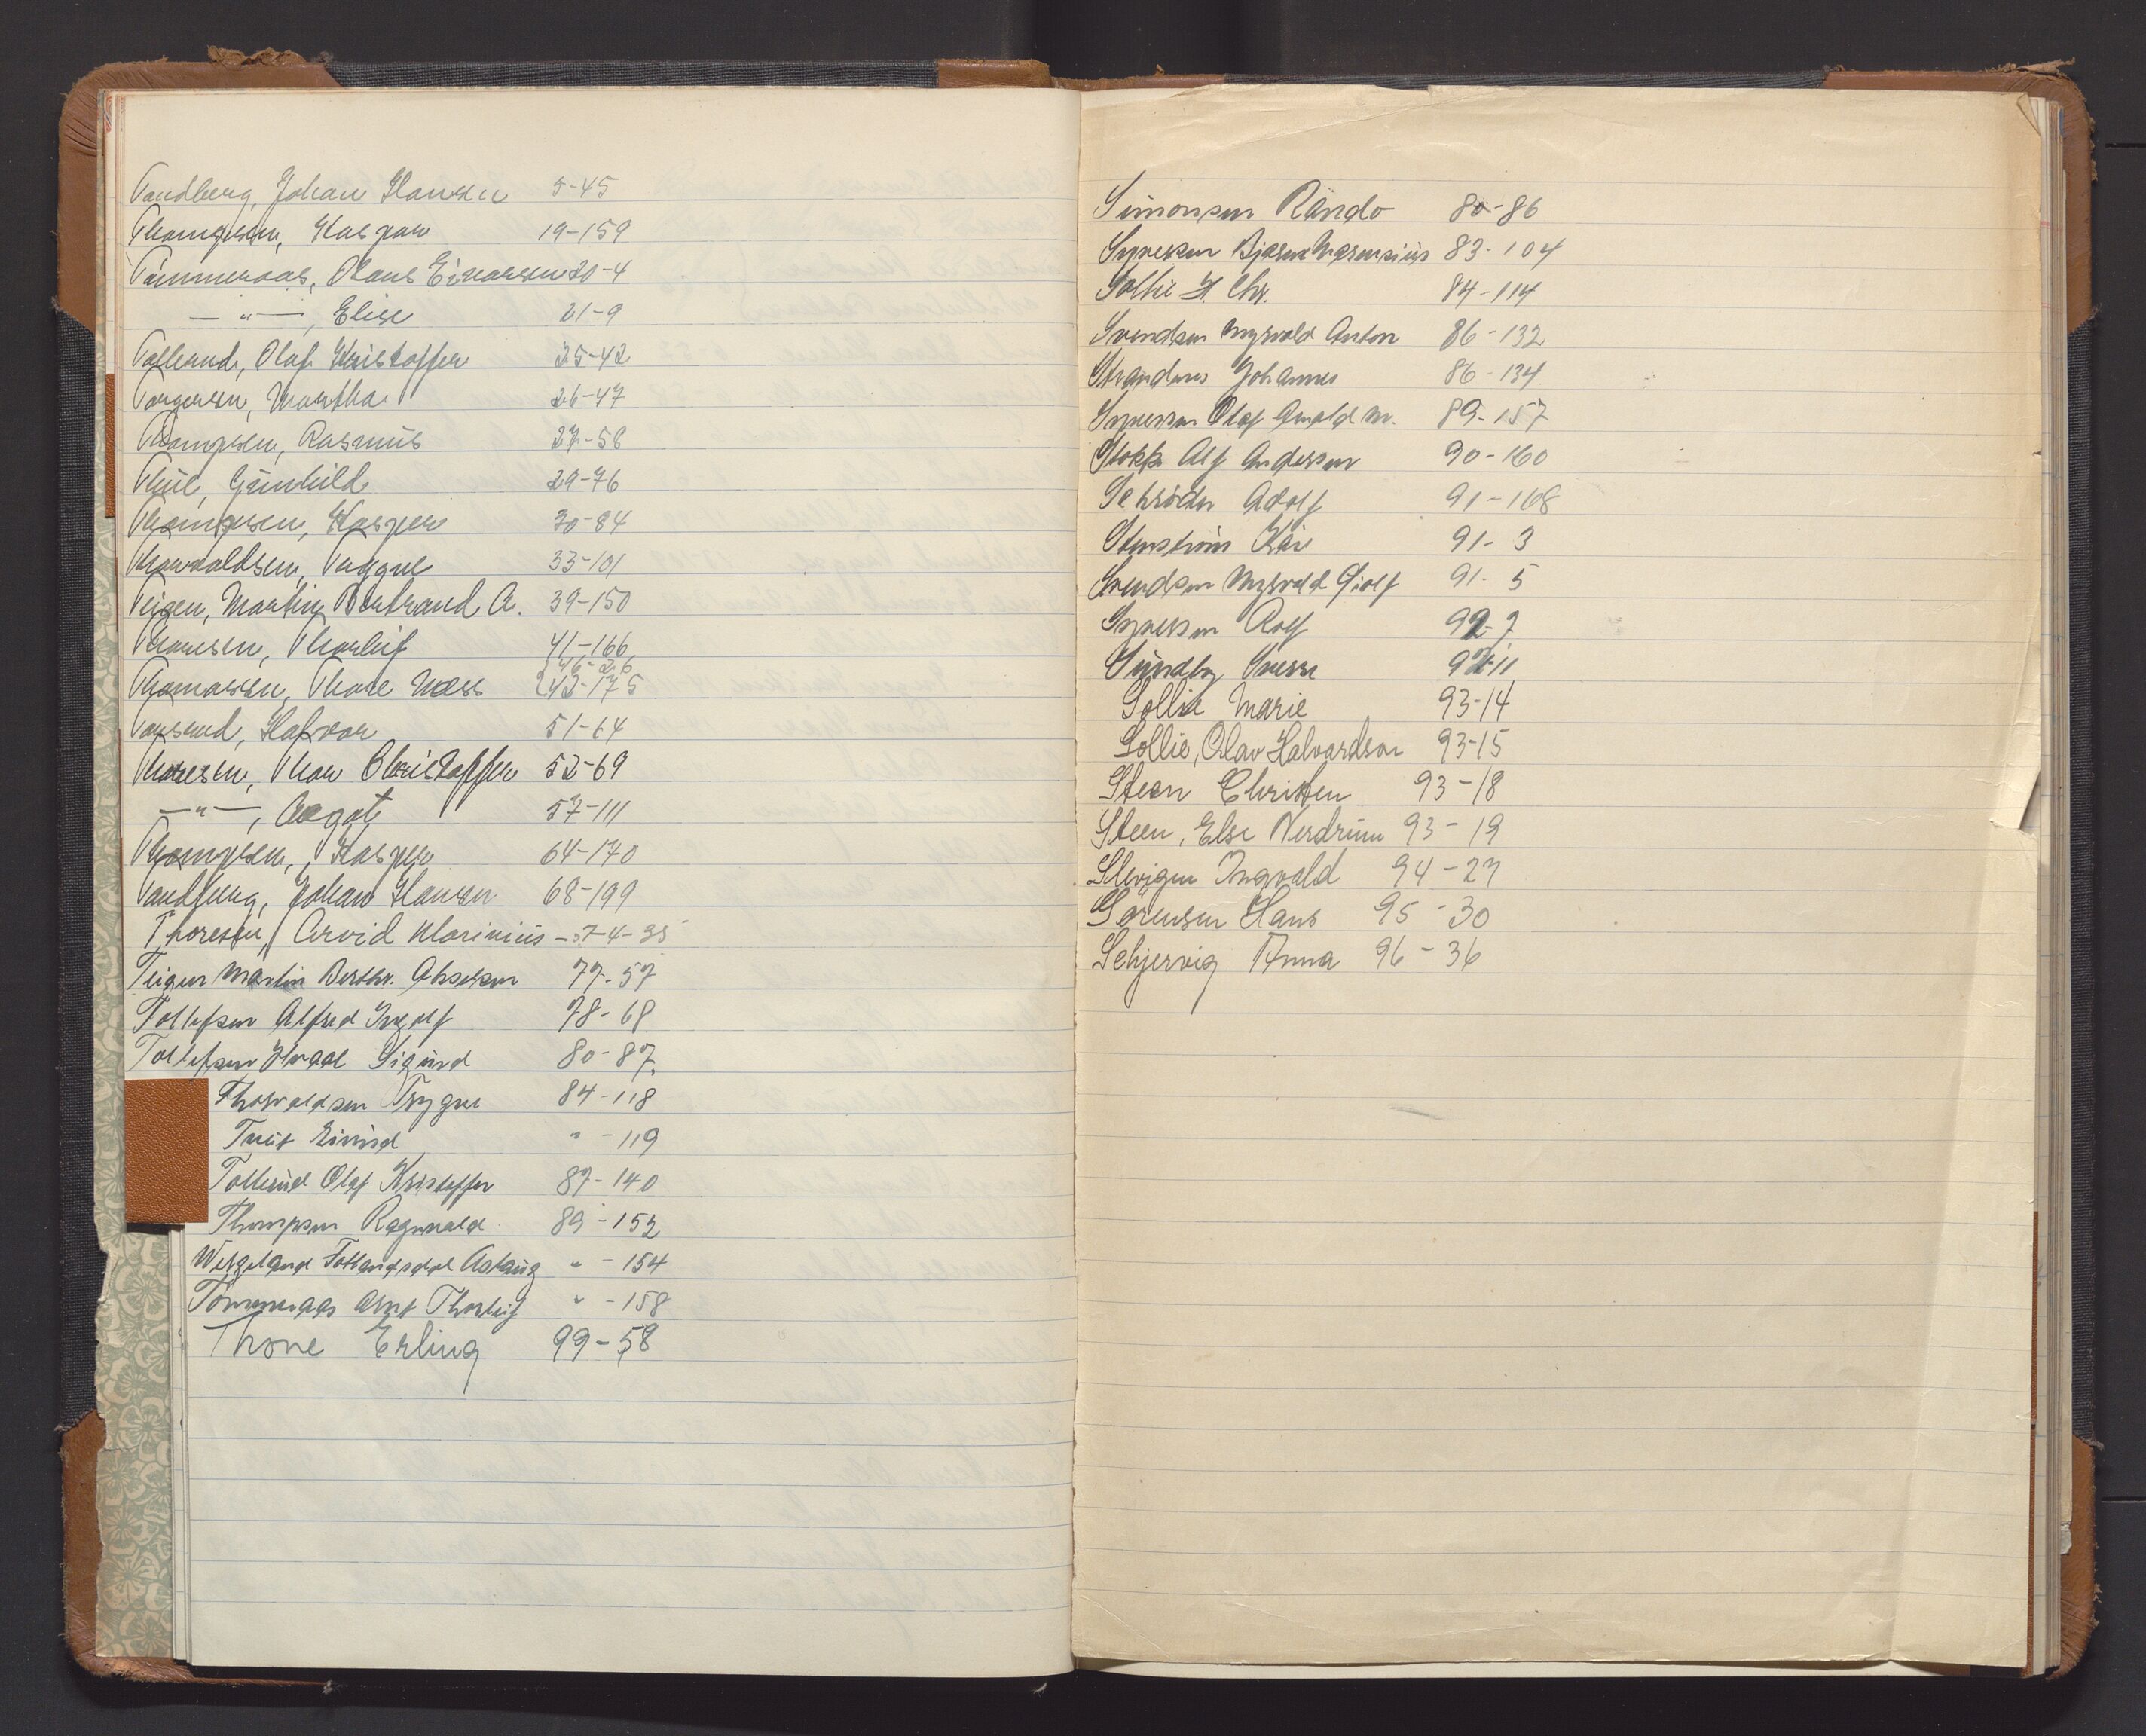 Tandberg, Johan Hansen 5-45
Thompsen, Kaspar 19-159
Tømmeraas, Olaus Einarsen 20-4
— " —, Elise 21-9
Tollerud, Olaf Kristoffer 25-42
Torgersen, Martha 26-47
Thompsen, Rasmus 27-58
Thue, Gunhild 29-76
Thompsen, Kasper 30-84
Thorvaldsen, Trygve 33-101
Teigen, Martin Bertrand A. 39-150
Thoresen, Thorleif 41-166
46-26
Thomassen, Thore Moss 42-175
Halvor 51-64
Thoresen, Thor Christoffer 52-69
— " —, Aagot 57-111
Thompsen, Kasper 64-170
Tandberg, Johan Hansen 68-199
Thoresen, Arvid Marinius - 57-4-35
Teigen Martin Berthr. Abselsen 77-57
Tollefsen Alfred Ingolf 78-68
Tollefsen Harald Sigurd 80-87
Thorvaldsen Trygve 84-118
Tveit Eivind " - 119
Tollerud Olaf Kristoffer 87-140
Thompsen Ragnvald 89-152
Wergeland Totlandsdal Aslaug " - 154
Tömmeraas Arnt Thorleif " - 158
Thone Erling 99-58
Simonsen Rando 80-86
Syversen Bjarne Marensius 83-104
Sollie H. Chr. 84-114
Svendsen Ingvald Anton 86-132
Strandnes Johannes 86-134
Syversen Olaf Arnold M. 89-157
Stokke Alf Andersen 90-160
Schröder Adolf 91-168
Stenström Kåre 91-3
Svendsen Ingvald 91-5
Syversen Rolf 92-7
Sundby Sverre 92-11
Sollie Marie 93-14
Sollie, Olav Halvardson 93-15
Steen Christen 93-18
Steen, Else Nerdrum 93-19
Slevigen Ingvald 94-27
Sørensen Hans 95-30
Schjervig Anna 96-36